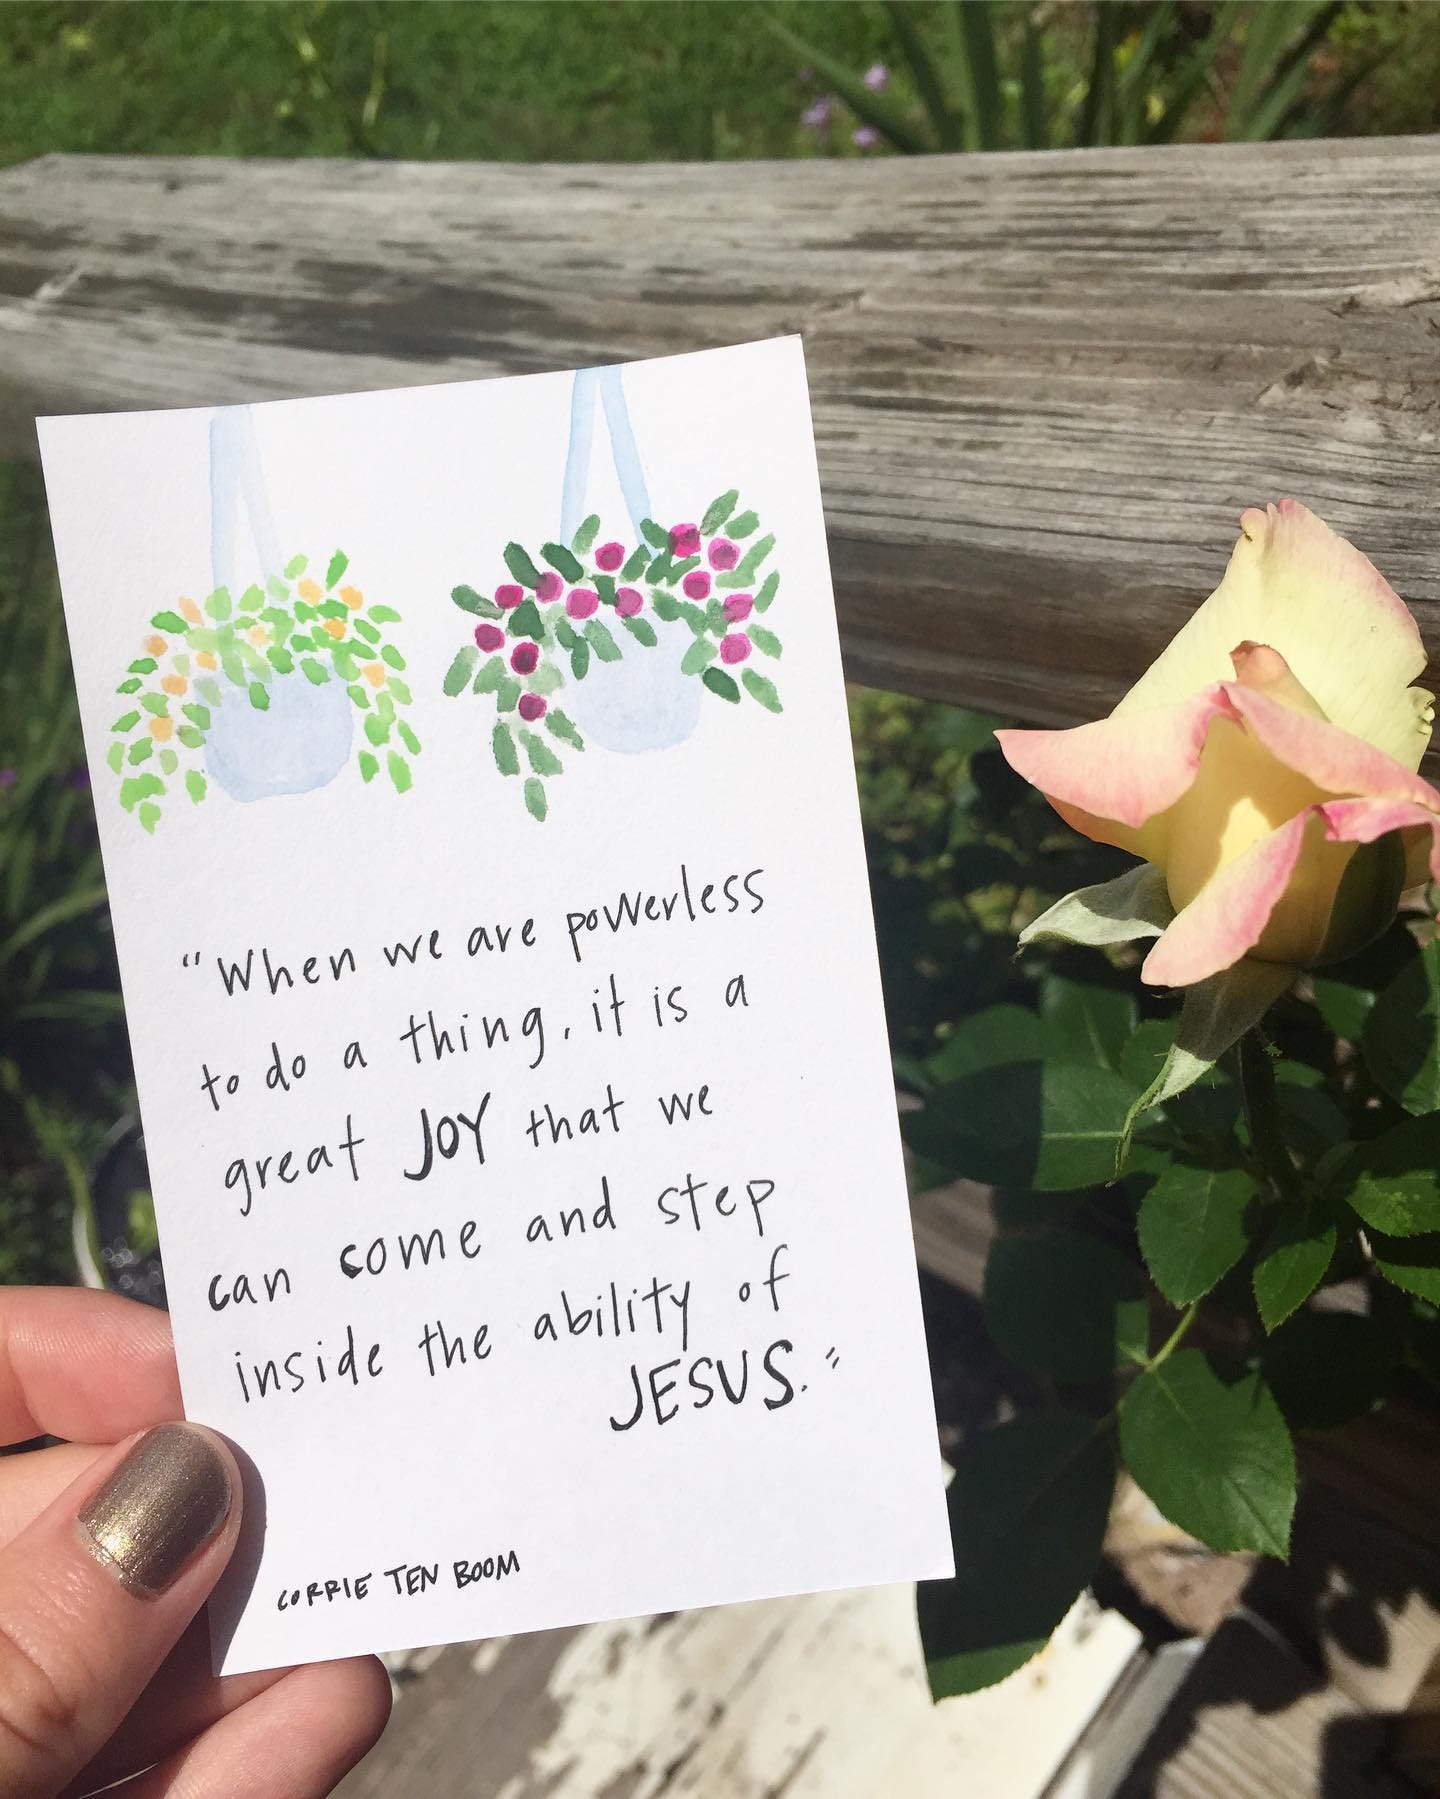 "When we are powerless
to do a thing, it is a
great JOY that we
can come and step
inside the ability of
JESUS."
CORRIE TEN BOOM